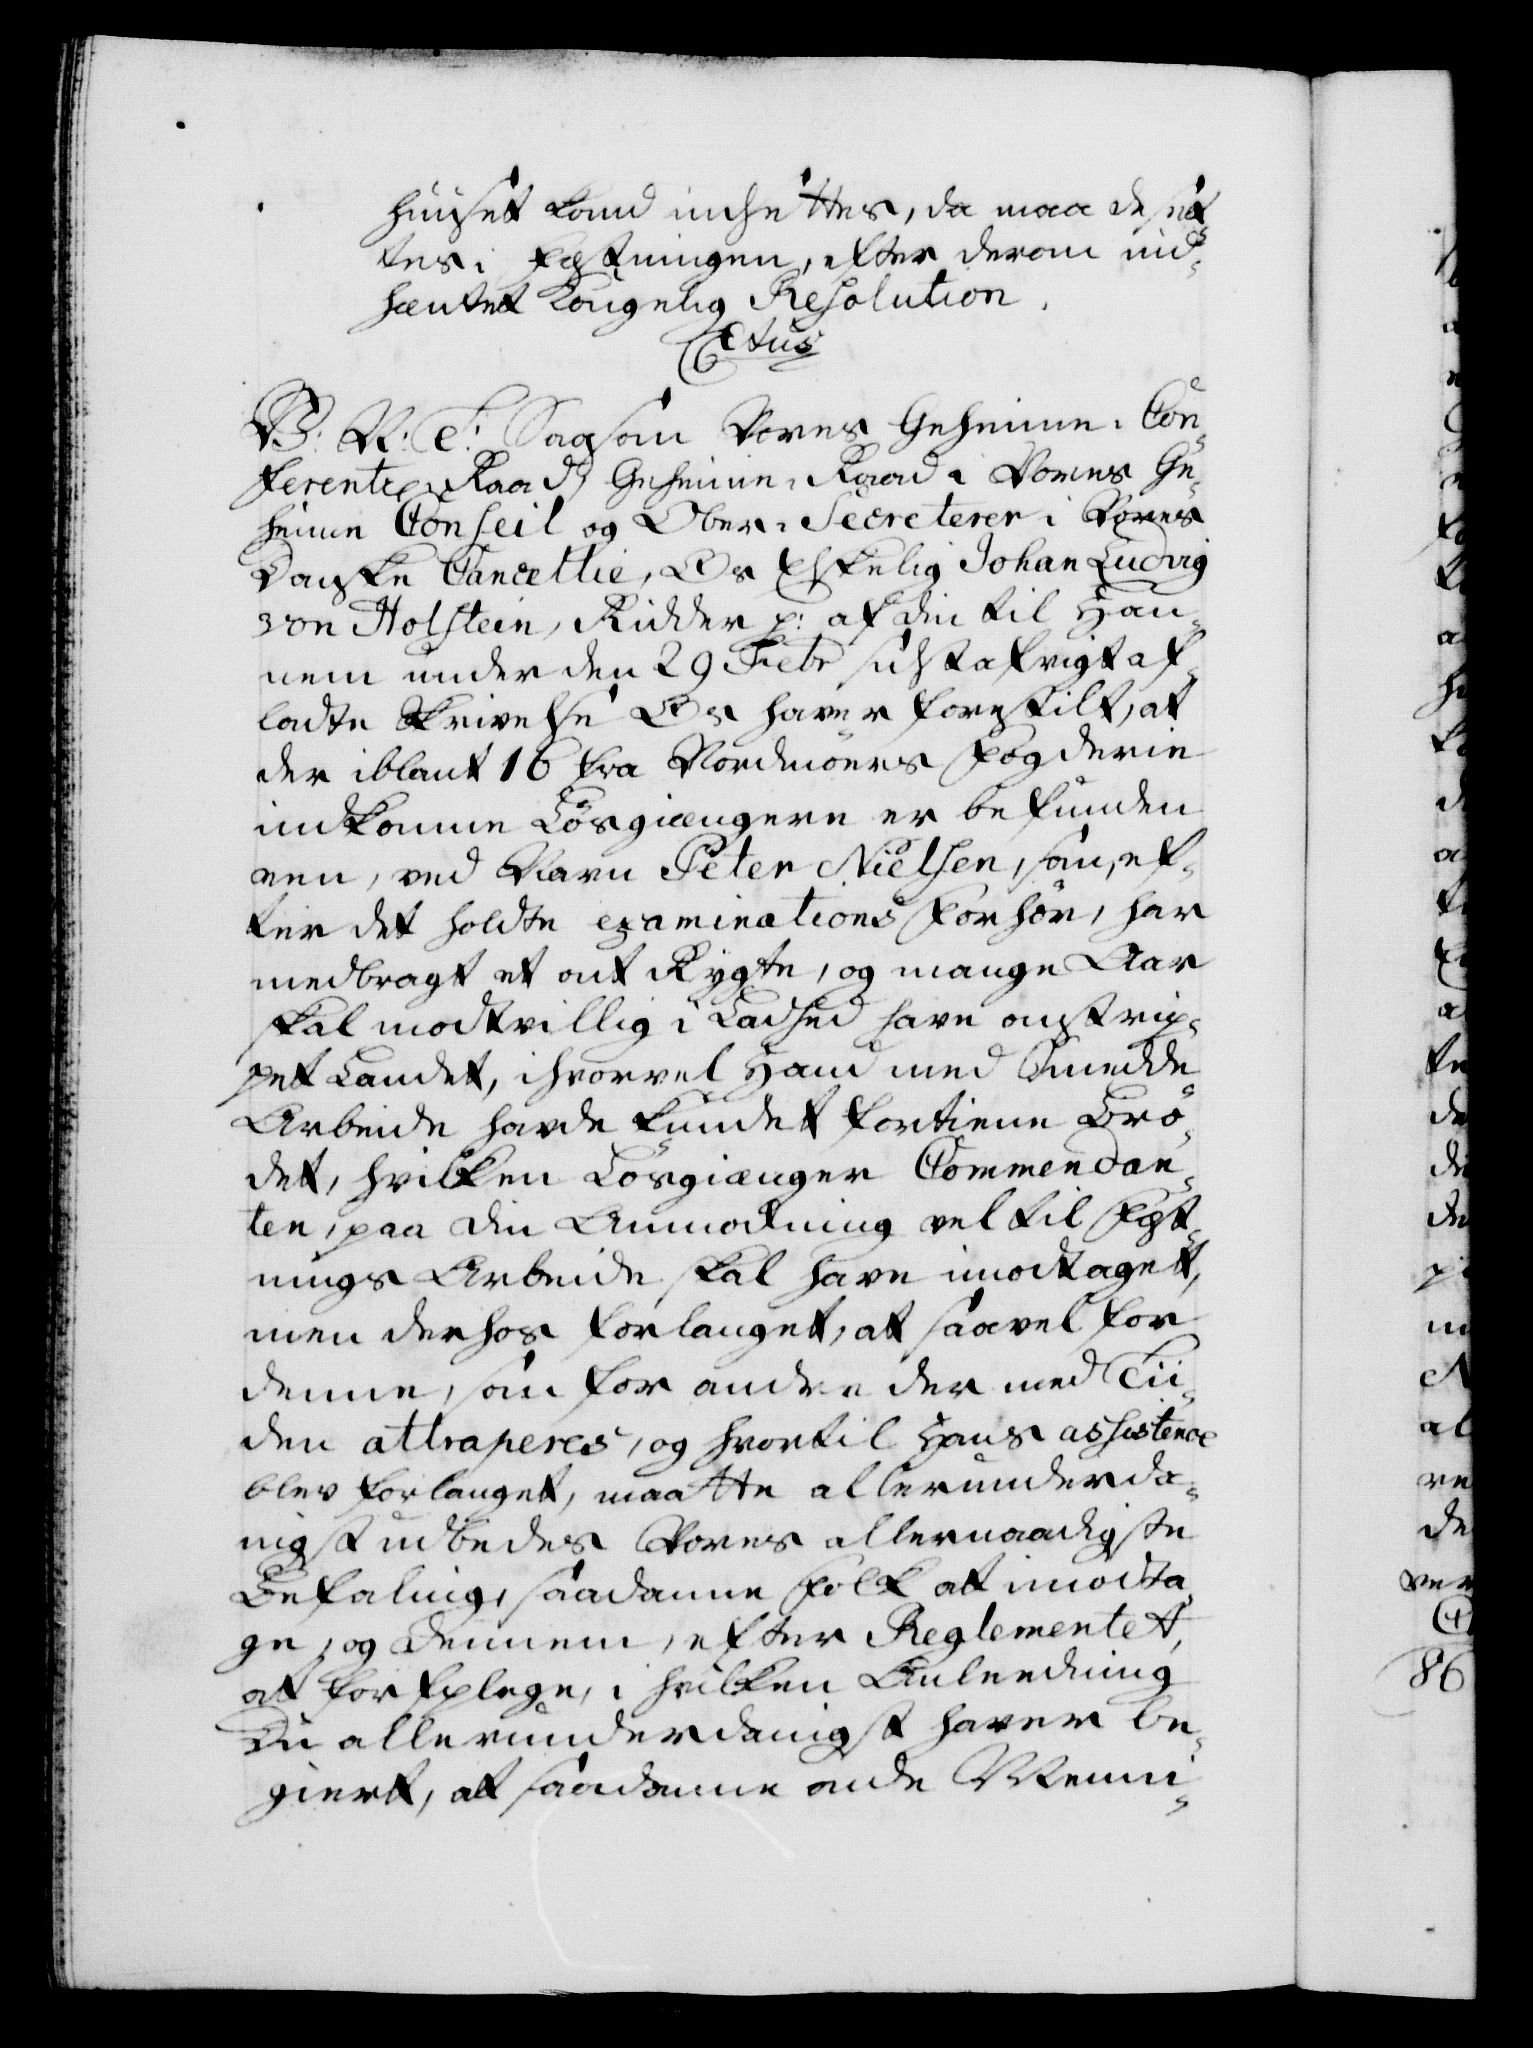 huuset kand indsættes, da maa de sæt-
tes i Fæstningen, efter derom ind-
hæntet Kongelig Resolution.
C6tus
V: A: T: Saasom Vores Geheime-Con-
ferentze-Raad, Geheime-Raad i Vores Ge-
heime Conseil og Ober-Secreterer i Vores
Danske Cancellie, Os Elskelig Johan Ludvig
von Holstein, Ridder p: af din til Han-
nem under den 29 Febr sidst afvigt af-
ladte Skrivelse Os haver forestilt, at
der iblant 16 fra Nordmöers Fogderie
indkomne Lösgiængere er befunden
een, ved Navn Peter Nielsen, som, ef-
ter det holdte examinations Forhör, har
medbragt et ont Rygte, og mange Aar
skal modtvillig i Ladhed have omstrip-
pet Landet, ihvorvel Hand med Smedde
Arbeide havde kundet fortiene Brö-
det, hvilken Lösgiænger Commendan-
ten, paa din Anmodning vel til Fæst-
nings Arbeide skal have imodtaget,
men derhos forlanget, at saavel for
denne, som for andre der med Tii-
den attraperes, og hvortil Hans assistence
blev forlanget, maatte allerunderda-
nigst udbedes Vores allernaadigste
Befaling, saadanne Folk at imodta-
ge, og dennem, efter Reglementet,
at forfplege, i hvilken Anleedning
Du allerunderdanigst haver be-
giert, at saadanne onde Menni-